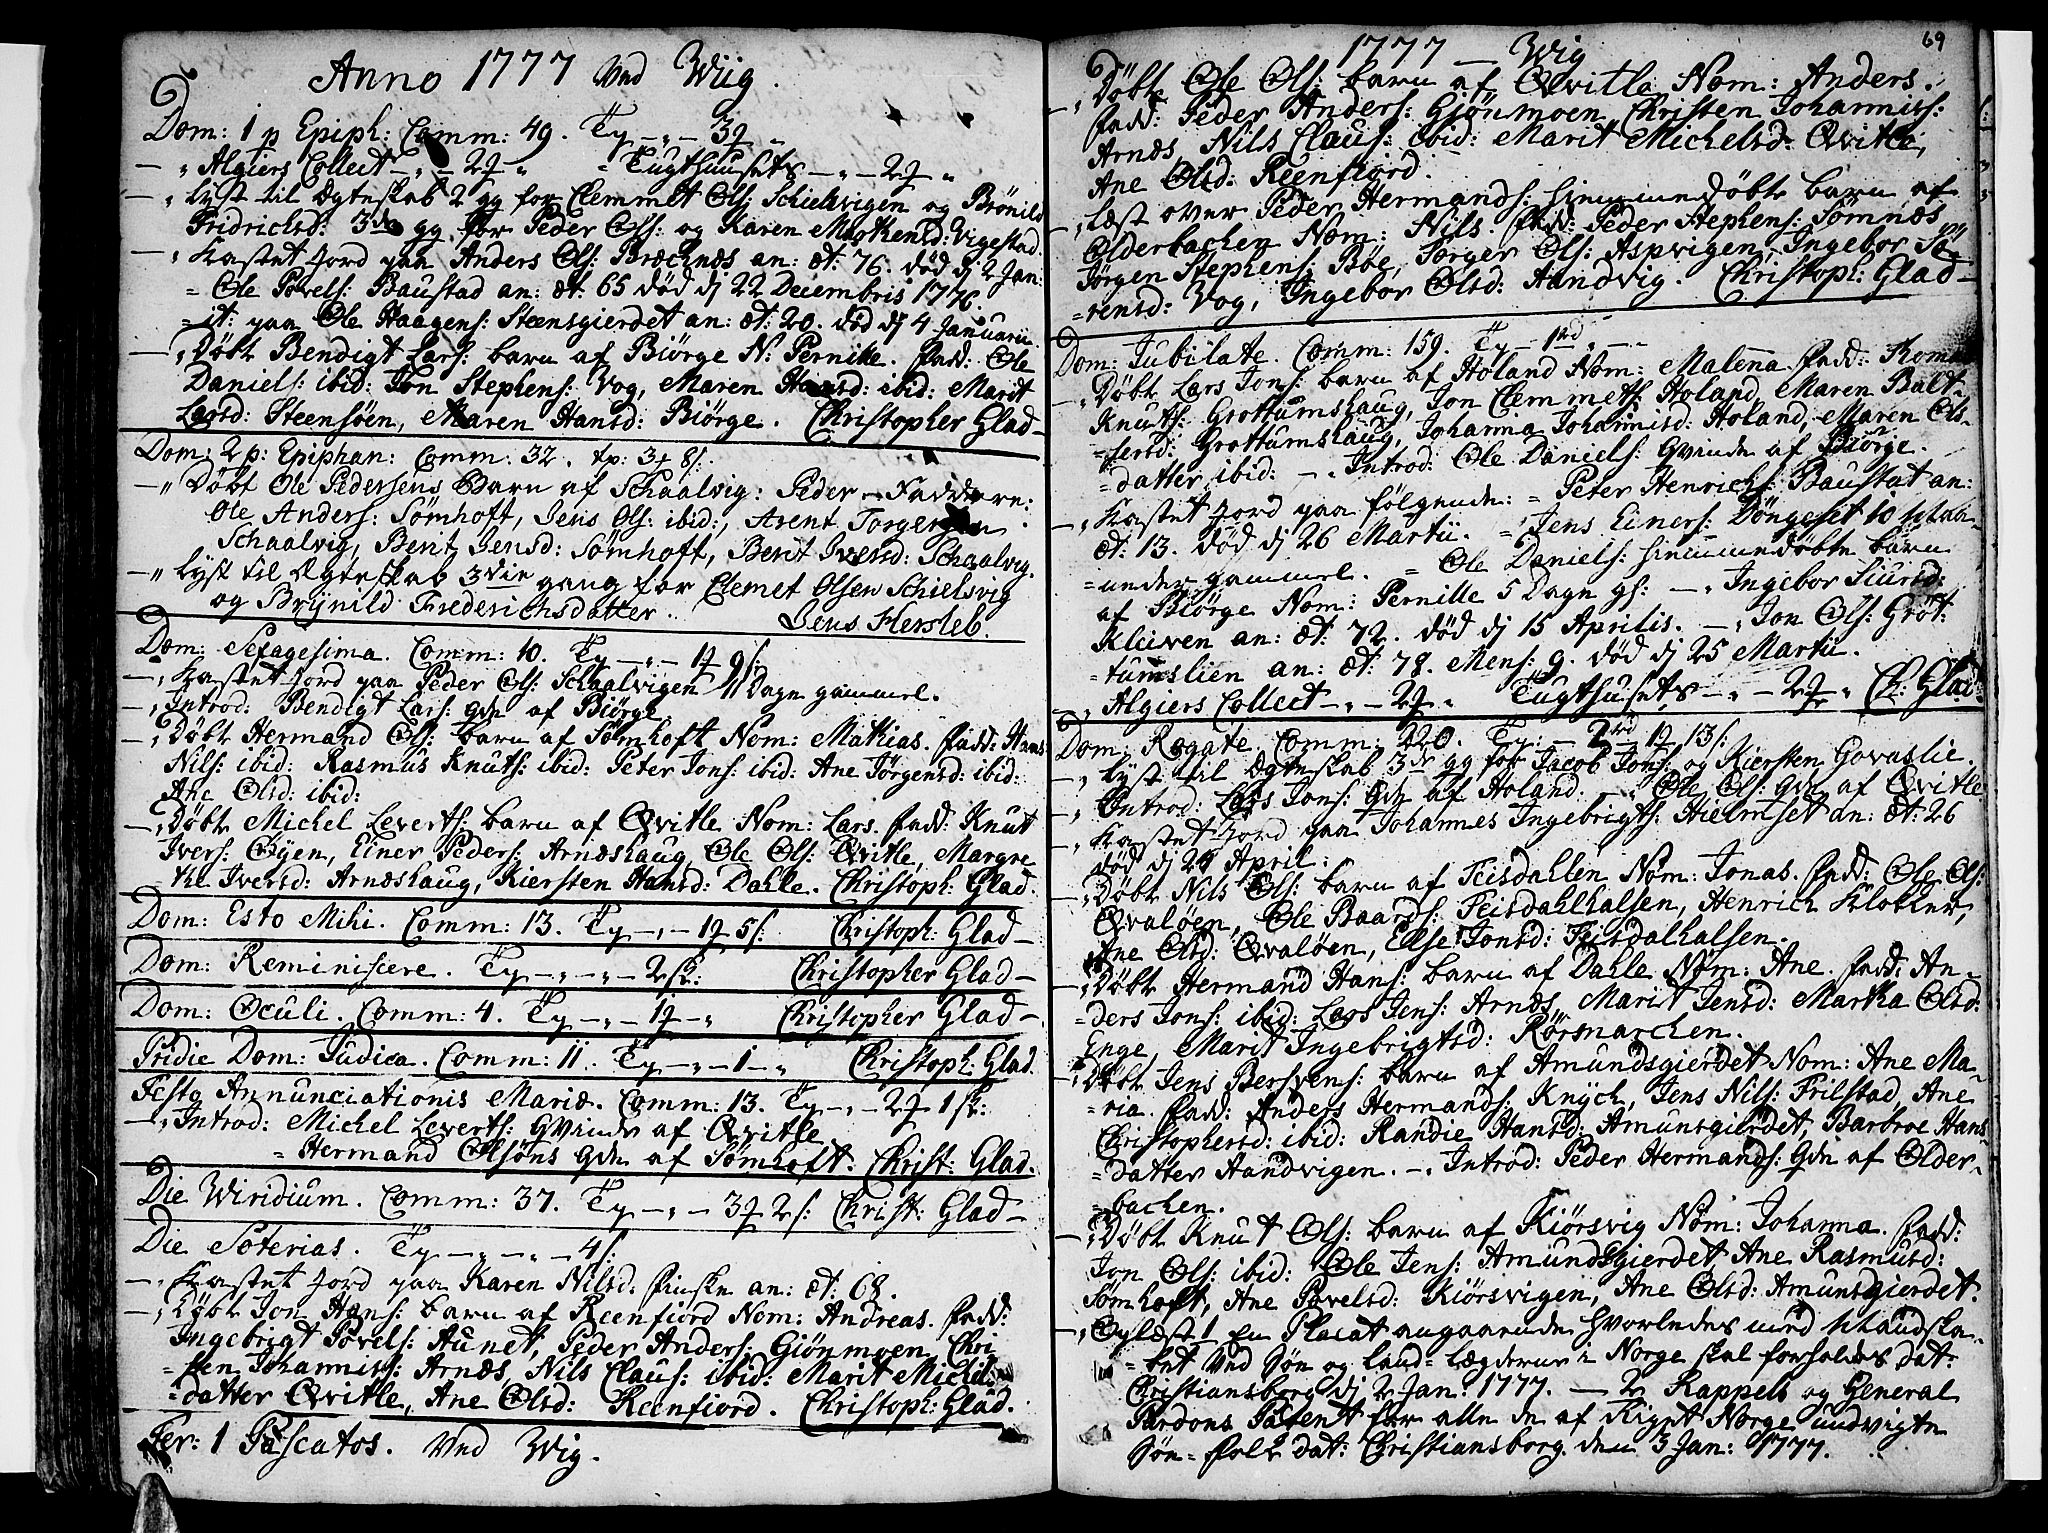 Anno 1777 Ved Wiig.
Dom: 1 p Epiph: Comm: 49. Ty — „ — 3
— „ Algiers Collect — „ — 2 „ = Tugthusets — „ — 2 „
— „ Lyst til Ægteskab 2 gg for Clemmet Ols: Schielvigen og Brönild
Fridrichsd: 3de gg for Peder Ols: og Karen Morthensd: Vigestad.
— „ Kastet Jord paa Anders Ols: Brechnæs an: æt: 76. död dj 2 Jan:
= Ole Povels: Baustad an: æt: 65 död dj 22 Decembris 1776.
= it: paa Ole Haagens: Steensgierdet an: æt: 20. död dj 4 Januarii.
— „ Döbt Bendigt Lars: barn af Biörge N: Pernille. Fadd: Ole
Daniels: ibid: Jon Stephens: Vog, Maren Hansd: ibid: Marit
Larsd: Steensöen, Maren Hansd: Biörge. Christopher Glad —
Dom: 2 p: Epiphan: Comm: 32. tp: 3 8/:
— „ Döbt Ole Pedersens Barn af Schaalvig: Peder — Faddere:
Ole Anders: Sömhoft, Jens Ols: ibid:, Arent Torgersen
Schaalvig, Berit Jensd: Sömhoft, Berit Iversd: Schaalvig.
— „ Lyst til Ægteskab 3die gang for Clemet Olsen Schielsvig
og Brÿnild Frederichsdatter. Jens Hersleb.
Dom: Sexagesima. Comm: 10. Ty — „ — 1 9/:
— „ Kastet Jord paa Peder Ols: Schaalvigen 11 Dage gammel.
— „ Introd: Bendigt Lars: qde af Biörge
— „ Döbt Hermand Ols: barn af Sömhoft Nom: Mathias. Fadd: Hans
Nils: ibid: Rasmus Knuts: ibid: Peter Jons: ibid: Ane Jörgensd: ibid:
Ane Olsd: ibid:
— „ Döbt Michel Leverts: barn af Qvitle Nom: Lars. Fadd: Knut
Ivers: Öyen, Einer Peders: Arnæshaug, Ole Ols: Qvitle, Margre
= the Iversd: Arnæshaug, Kiersten Hansd: Dahle. Christoph: Glad.
Dom: Esto Mihi. Comm: 13. Ty — „ — 1 5/: Christoph: Glad —
Dom: Reminiscere. Ty — „ — „ — 2 sk: Christopher Glad —
Dom: Oculi. Comm: 4. Ty — „ — 1 — „ Christopher Glad —
Pridie Dom: Judica. Comm: 11. Ty — „ — 1 — „ Christoph: Glad.
Festo Annunciationis Mariæ. Comm: 13. Ty — „ — 2 1 sk:
— „ Introd: Michel Leverts: Qvinde af Qvitle
= Hermand Olsöns qde af Sömhoft. Christ: Glad.
Die Wiridium. Comm: 37. Ty — „ — 3 2/: Christ: Glad —
Die Soterias. Ty — „ — „ — 4/:
— „ Kastet Jord paa Karen Nilsd: Finske an: æt: 68.
— „ Döbt Jon Hans: barn af Reenfiord Nom: Andreas. Fadd:
Ingebrigt Povels: Aunet, Peder Anders: Giönmoen, Chri
= sten Johannis: Arnæs, Nils Claus: ibid: Marit Michels
= datter Qvitle, Ane Olsd: Reenfiord. Christoph: Glad.
Fer: 1 Pascatos. Ved Wig.
1777 — Wig
69
— „ Döbt Ole Ols: barn af Qvitle Nom: Anders.
Fadd: Peder Anders: Giönmoen, Christen Johannis:
Arnæs, Nils Claus: ibid: Marit Michelsd: Qvitle,
Ane Olsd: Reenfiord.
— „ Læst over Peder Hermands: hiemmedöbte barn af
Olderbachen Nom: Nils. Fadd: Peder Stephens: Sömnæs
Jörgen Stephens: Böe, Torger Ols: Aspvigen, Ingebor Sö
= rensd: Vog, Ingebor Olsd: Handvig. Christoph: Glad —
Dom: Jubilate. Comm: 159. Ty — 1rd „ — „
— „ Döbt Lars Jons: barn af Holand Nom: Malena. Fadd: Thomas
Knuts: Grottumshaug, Jon Clemmets: Holand, Maren Balt
= sersd: Grottumshaug, Johanna Johannisd: Holand, Maren Ols
= datter ibid: — „ Introd: Ole Daniels: Qvinde af Biörge.
— „ Kastet Jord paa fölgende: = Peter Henrichs: Baustat an:
æt: 13. död dj 26 Martii. = Jens Einers: Döngeset 10 Maa
= neder gammel. = Ole Daniels: hiemmedöbte barn
af Biörge Nom: Pernille 5 Dage gl: — „ Ingebor Siursd:
Kleiven an: æt: 72. död dj 15 Aprilis. — „ Jon Ols: Gröt:
= tumslien an: æt: 78. Mens: 9. död dj 25 Martii.
— „ Algiers Collect — „ — 2 „ Tugthusets — „ — 2 „ Ch: Glad:
Dom: Rogate Comm: 220. Ty: — 2rd 1 13/:
— „ Lyst til Ægteskab 3de gg for Jacob Jons: og Kiersten Govaslie.
— „ Introd: Lars Jons: Qde af Holand. — „ Ole Ols: Qde af Qvitle
— „ Kastet Jord paa Johannes Ingebrigts: Hiemset an: æt: 26
död dj 20 April.
— „ Döbt Nils Ols: barn af Feisdahlen Nom: Jonas. Fadd: Ole Ols:
Qvalöen, Ole Baards: Feisdahlhalsen, Henrich Klokker,
Ane Olsd: Qvalöen, Else Jonsd: Feisdalhalsen.
— „ Döbt Hermand Hans: barn af Dahle Nom: Ane. Fadd: An —
= ders Jons: ibid: Lars Jens: Arnæs, Marit Jensd: Martha Olsd:
Enge, Marit Ingebrigtsd: Rörmarchen.
— „ Döbt Jens Bersvens: barn af Amundsgierdet Nom: Ane Ma —
= ria. Fadd: Anders Hermands: Knÿch, Jens Nils: Frilstad, Ane
Christophersd: ibid: Randie Hansd: Amunsgierdet, Barbroe Hans
= datter Handvigen. — „ Introd: Peder Hermands: Qde af Older —
= bachen.
— „ Döbt Knut Ols: barn af Kiörsvig Nom: Johanna. Fadd:
Jon Ols: ibid: Ole Jens: Amundsgierdet, Ane Rasmusd:
Sömhoft, Ane Povelsd: Kiörsvigen, Ane Olsd: Amunsgierdet.
— „ Oplæst 1 En Placat angaaende hvorledes med Mandska
= bet ved Söe og Land = Lægderne i Norge skal forholdes dat:
Christiansborg dj 2 Jan: 1777. — 2 Rappels og General
Pardons Patent for alle de af Riget Norge undvigte
Söe = folk dat: Christiansborg den 3 Jan: 1777.